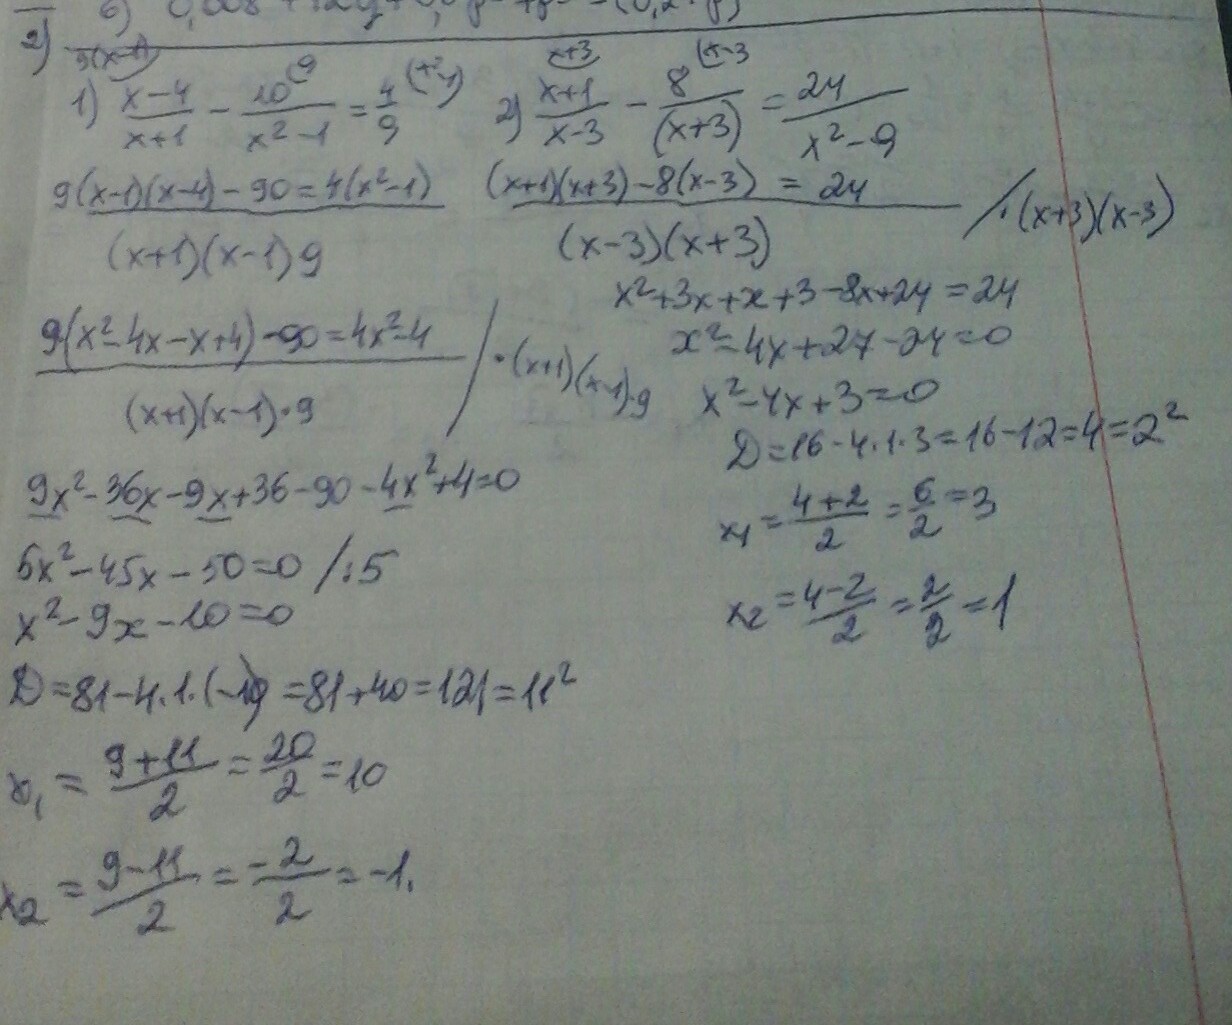 2)
1) (x-4)/(x+1) - 10/(x²-1) = 4/9
9(x-1)(x-4) - 90 = 4(x²-1)
(x+1)(x-1) 9
9(x²-4x-x+4) - 90 = 4x²-4 / ·(x+1)(x-1)·9
(x+1)(x-1)·9
9x²-36x-9x+36-90-4x²+4=0
5x²-45x-50=0 /:5
x²-9x-10=0
D=81-4·1·(-10) =81+40=121=11²
x₁ = (9+11)/2 = 20/2 = 10
x₂ = (9-11)/2 = -2/2 = -1.
2) (x+1)/(x-3) - 8/(x+3) = 24/(x²-9)
(x+1)(x+3)-8(x-3) = 24 / ·(x+3)(x-3)
(x-3)(x+3)
x²+3x+x+3-8x+24=24
x²-4x+27-24=0
x²-4x+3=0
D=16-4·1·3=16-12=4=2²
x₁ = (4+2)/2 = 6/2 = 3
x₂ = (4-2)/2 = 2/2 = 1